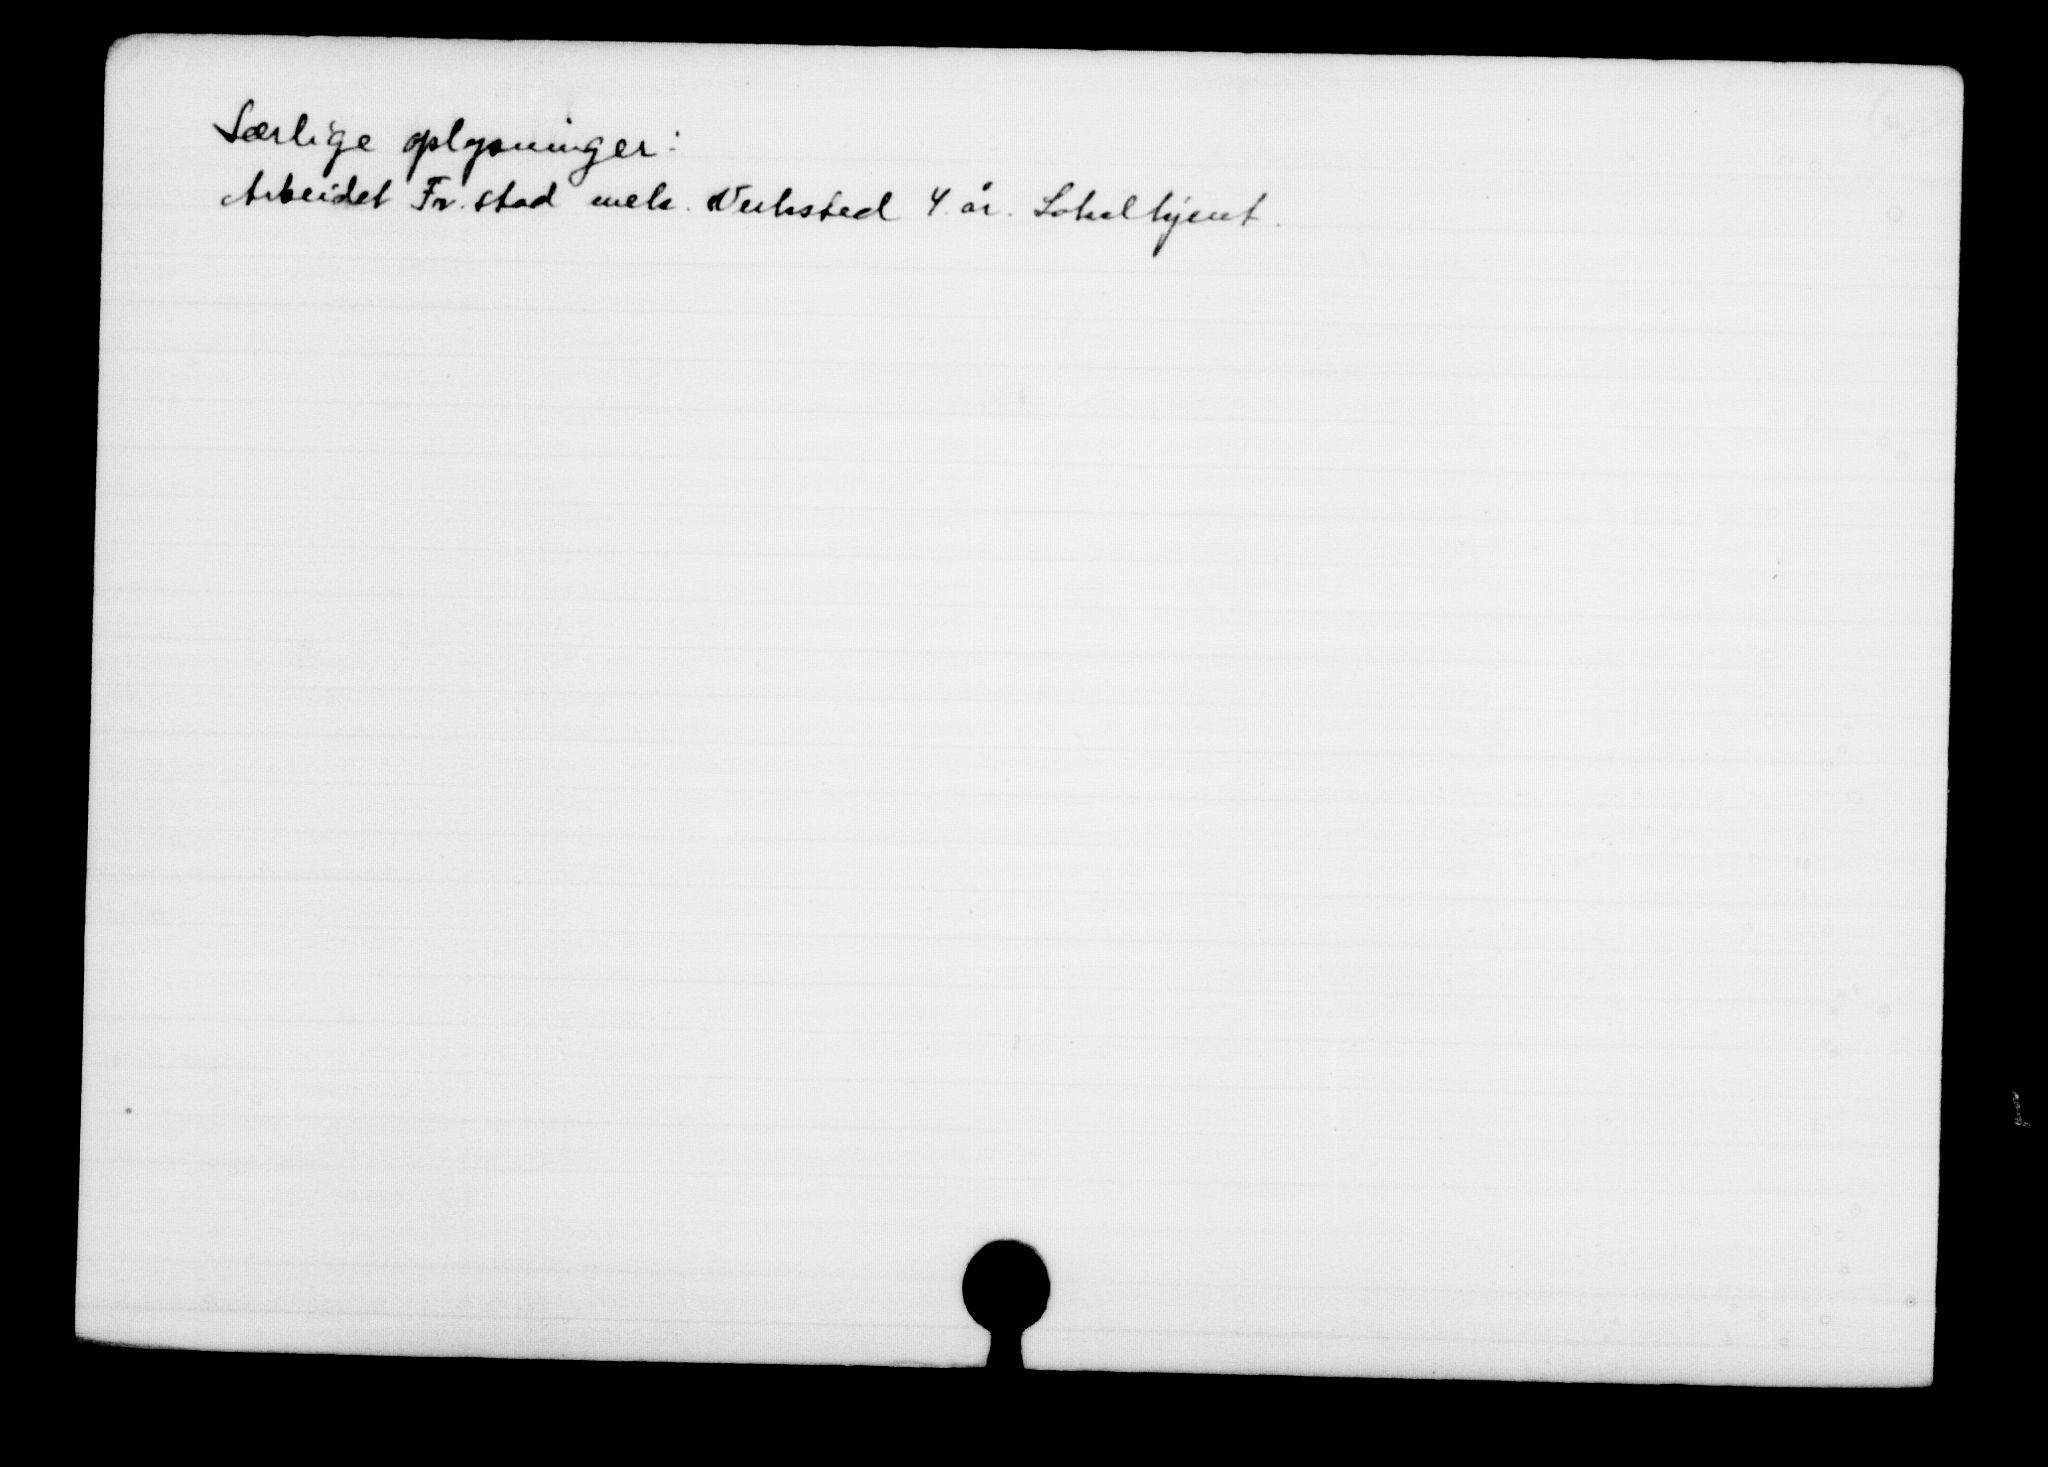 Særlige oplysninger:
Arbeidet Fr.stad mek. Verksted 4 år. Lokalkjent.